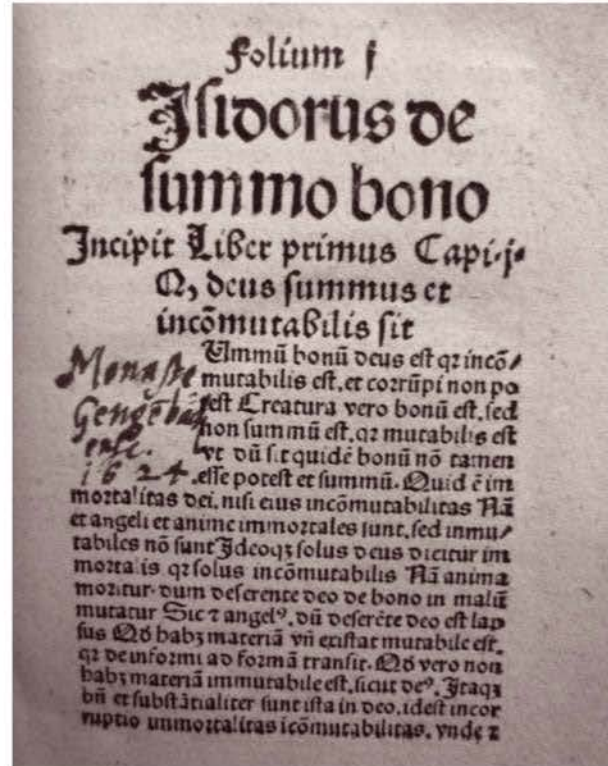 Folium j
Isidorus de
summo bono
Incipit Liber primus Capi·j·
Q, deus summus et
incōmutabilis sit
Ummū bonū deus est qꝛ incō/
mutabilis est. et corrūpi non po
test Creatura vero bonū est. sed
non summū est. qꝛ mutabilis est
vt dū sit quidē bonū nō tamen
esse potest et summū. Quid ē im
mortalitas dei. nisi eius incōmutabilitas Nā
et angeli et anime immortales sunt. sed inmu/
tabiles nō sunt Ideoqꝫ solus deus dicitur im
mortalis qꝛ solus incōmutabilis Nā anima
moritur. dum deserente deo de bono in malū
mutatur Sic ⁊ angelꝰ. dū deserēte deo est lap
sus Qď habꝫ materiā vñ existat mutabile est.
qꝛ de informi ad formā transit. Qď vero non
habꝫ materiā immutabile est. sicut deꝰ. Itaqꝫ
bñ et substātialiter sunt ista in deo. idest incor
ruptio immortalitas icōmutabilitas. vndę ⁊
Monaste
Gengēba
ense.
1624.